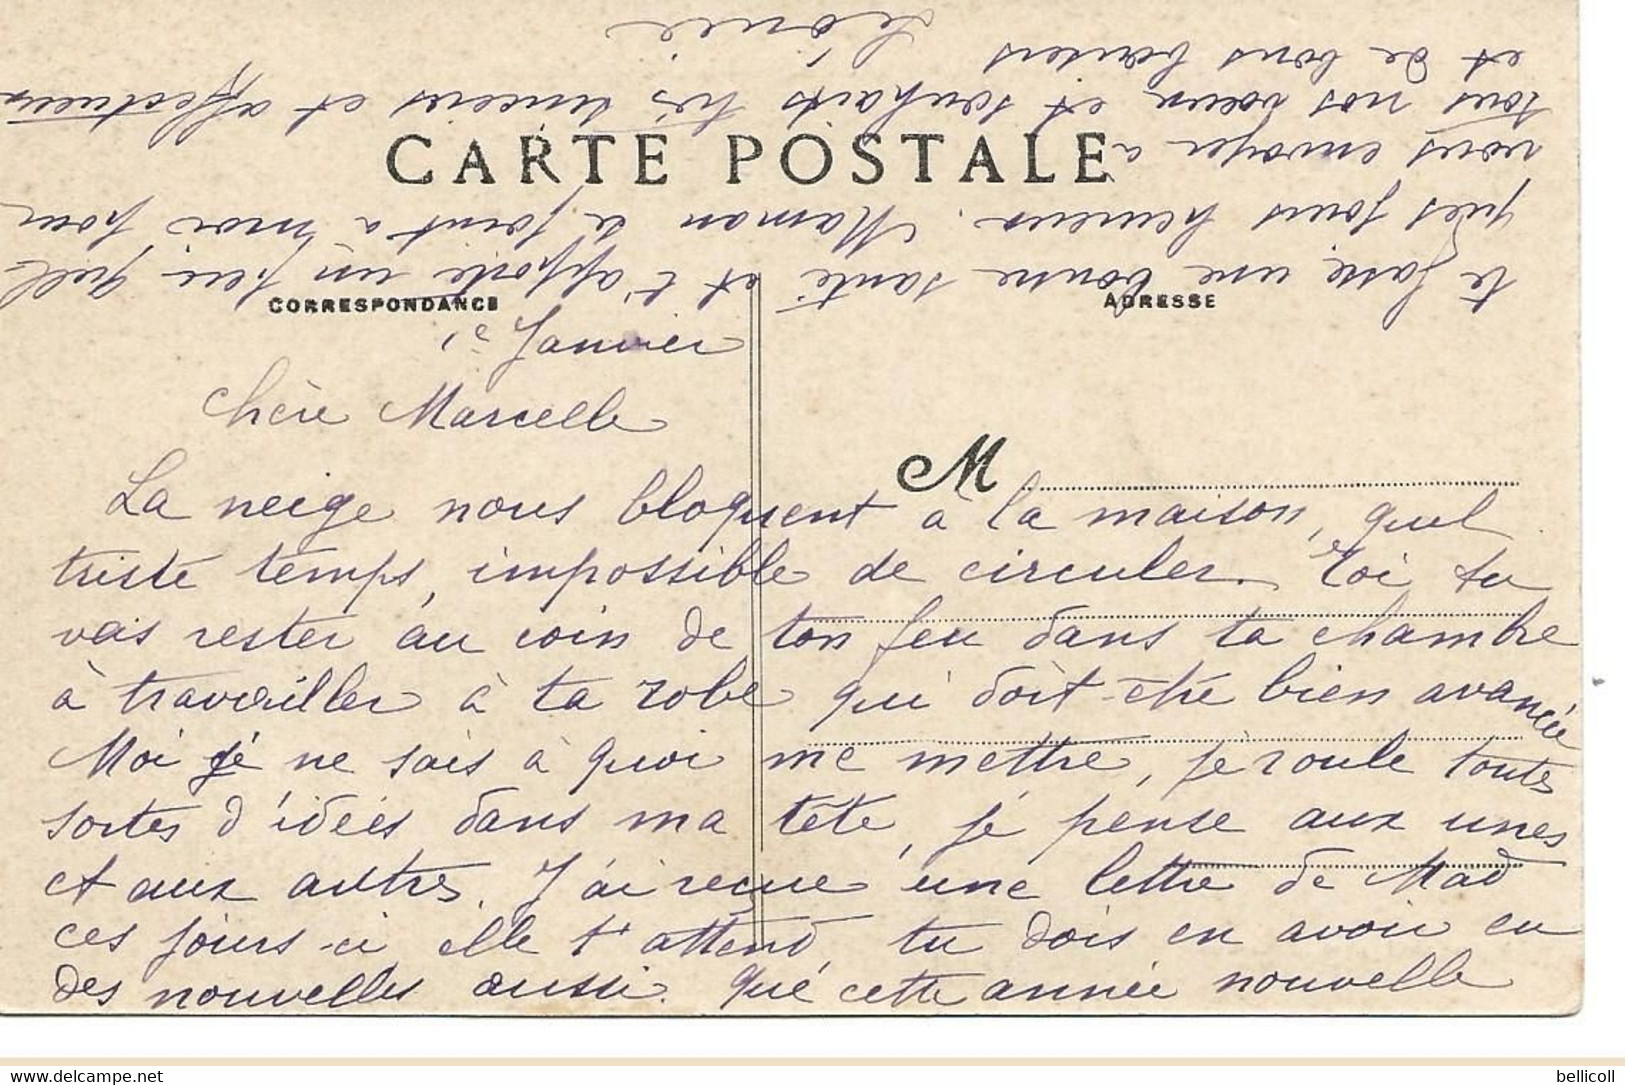 CARTE POSTALE
CORRESPONDANCE
ADRESSE
M
1e Janvier
Chère Marcelle
La neige nous bloquent a la maison, quel
triste temps, impossible de circuler. Toi tu
vas rester au coin de ton feu dans ta chambre
à travailler à ta robe qui doit être bien avancée
Moi je ne sais à quoi me mettre, je roule toutes
sortes d'idées dans ma tête, je pense aux unes
et aux autres. J'ai reçue une lettre de Mad
ces jours-ci elle t'attend, tu dois en avoir eu
des nouvelles aussi. que cette année nouvelle
te fasse une bonne santé et t'apporte un peu quel-
ques jours heureux. Maman se joint à moi pour
vous envoyer a
tous nos vœux et souhaits très sinceres et affectueux
et de bons baisers
Léonie
www.delcampe.net
bellicoll